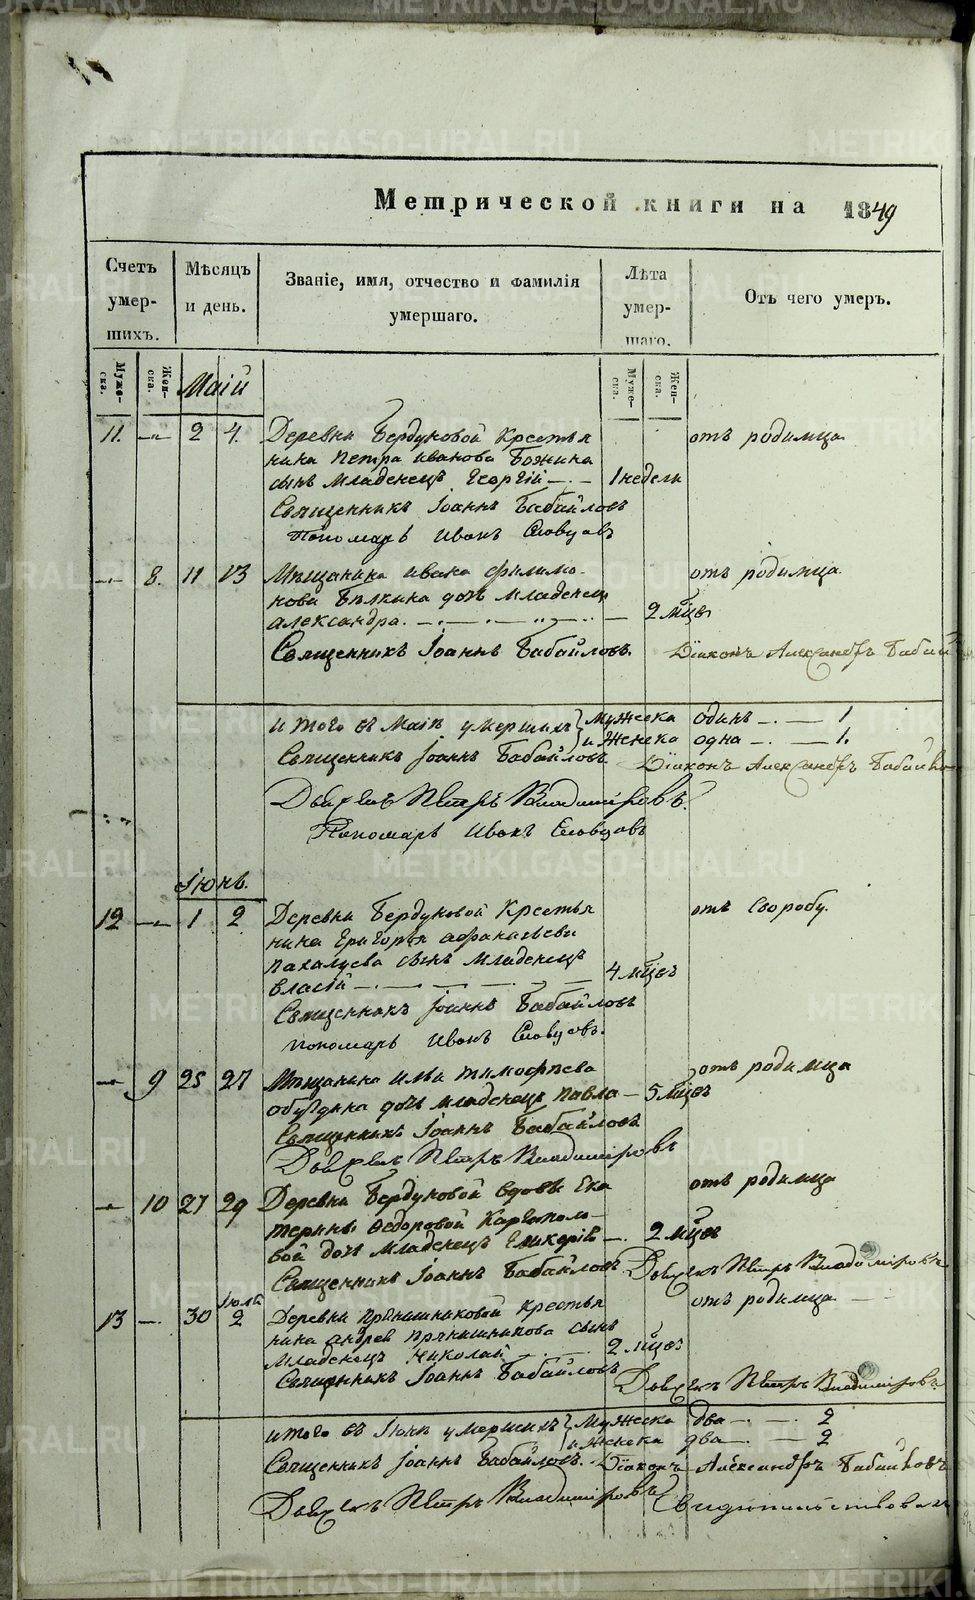 METRIKI.GASO-URAL.RU
Метрической книги на 1849
Счетъ умершихъ.
Мѣсяцъ и день.
Званіе, имя, отчество и фамилія умершаго.
Лѣта умершаго.
Отъ чего умеръ.
Мужеска. Женска.
Мужеска. Женска.
Маій
11. —„— 2 4. Деревни Бердуковой Крестья отъ родимца
нина Петра Иванова Божина
сынъ младенецъ Георгій — 1 недели
Священникъ Іоаннъ Бабайловъ
Пономарь Иванъ Словцовъ
—„— 8. 11 13 Мѣщанина Ивана Филимо- отъ родимца
нова Бѣлкина дочь младенецъ
Александра. — 2 мцсъ
Священникъ Іоаннъ Бабайловъ. Діаконъ Александръ Бабай
Итого въ Маіѣ умершихъ Мужеска одинъ — 1
и Женска одна — 1.
Священникъ Іоаннъ Бабайловъ Діаконъ Александръ Бабайло
Петръ Владиміровъ.
Пономарь Иванъ Словцовъ
Іюнь.
12 —„— 1 2 Деревни Бердуковой Крестья отъ Своробу.
нина Григорья Афанасьева
сынъ младенецъ
Власій — 4 мцсъ
Священникъ Іоаннъ Бабайловъ
пономарь Иванъ Словцовъ.
—„— 9 25 27 Мѣщанина Ильи Тимофѣева отъ родимца
дочь младенецъ Павла — 5 мцсъ
Священникъ Іоаннъ Бабайловъ
Петръ Владиміровъ
—„— 10 27 29 Деревни Бердуковой вдовы Ека отъ родимца
терины Федоровой Каргополо-
вой дочь младенецъ Гликерія — 2 мцсъ
Священникъ Іоаннъ Бабайловъ Петръ Владиміровъ
Іюля
13 — 30 2 Деревни Прянишниковой крестья отъ родимца
нина Андрея Прянишникова сынъ
младенецъ Николай 2 мцсъ
Священникъ Іоаннъ Бабайловъ Петръ Владиміровъ
итого въ Іюнѣ умершихъ Мужеска два — 2
и Женска два — 2
Священникъ Іоаннъ Бабайловъ. Діаконъ Александръ Бабайловъ
Петръ Владиміровъ Свидѣтельствовалъ